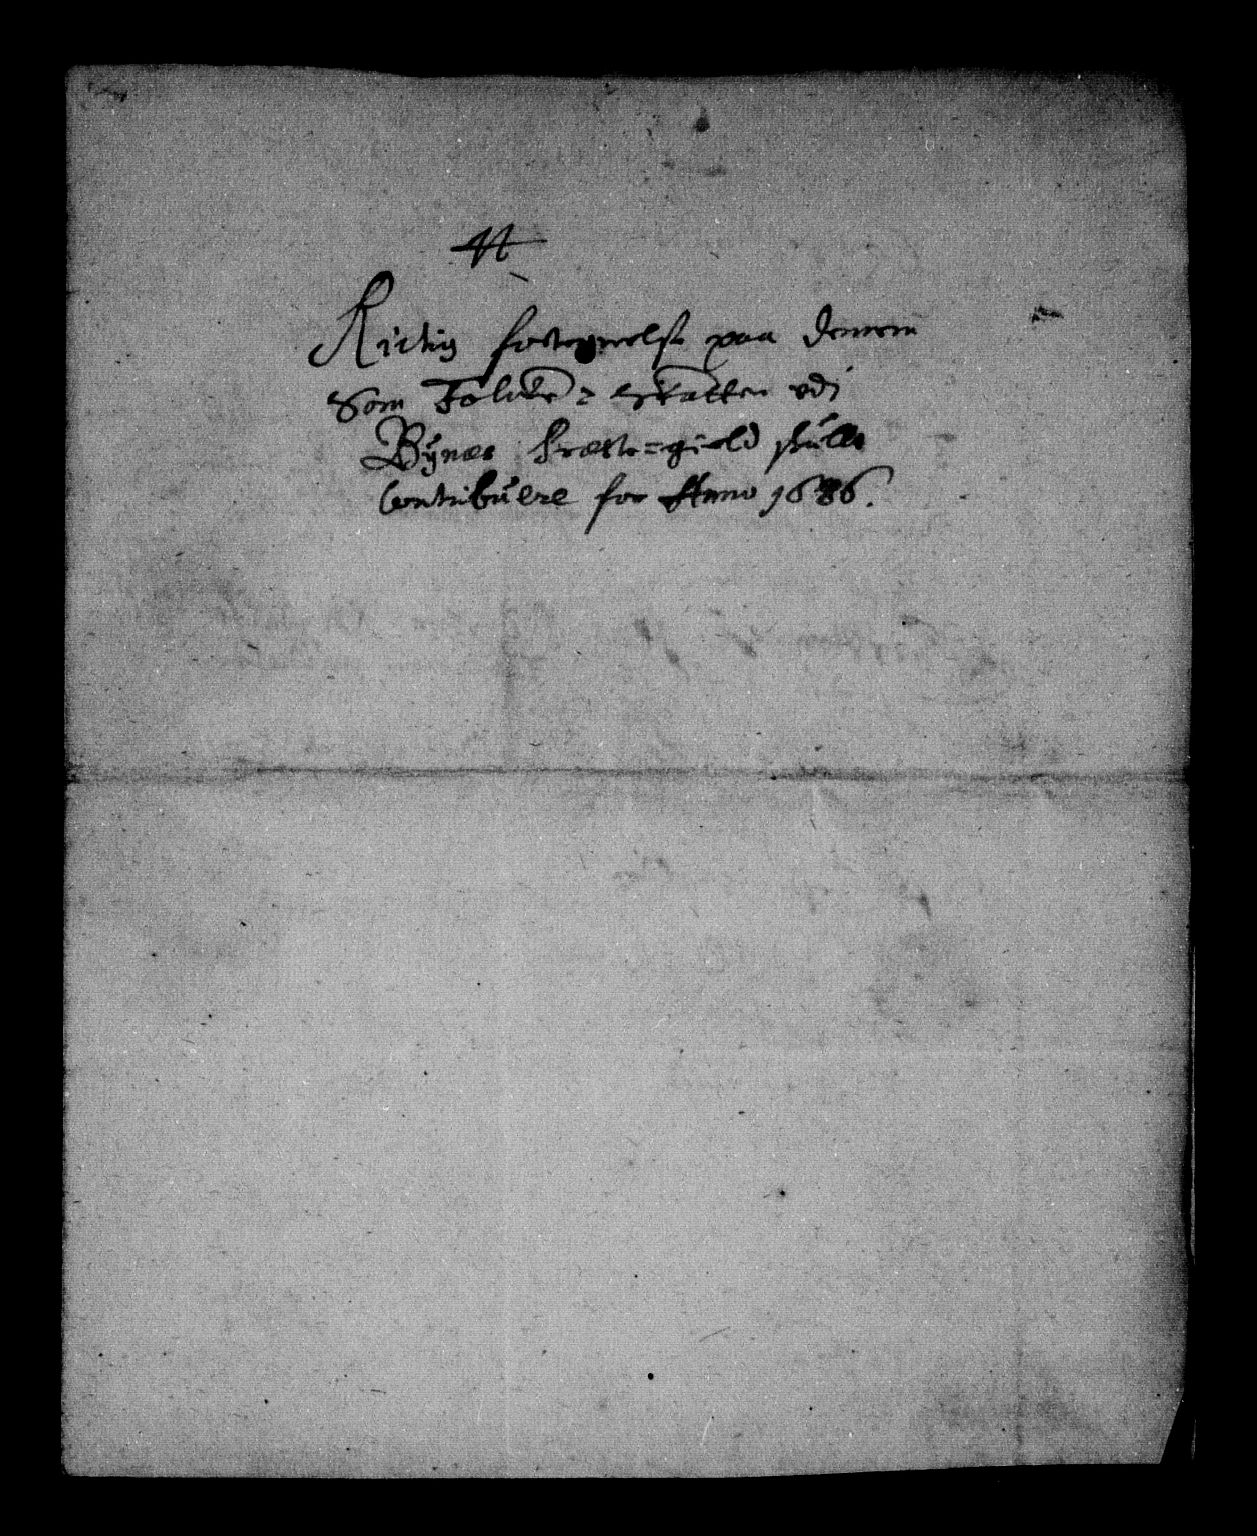 Rictig fortegnelse paa dennem
Som Folcke = Skatten udi
Bÿnæs Præste=gield skulle
Contribuere for Anno 1686.